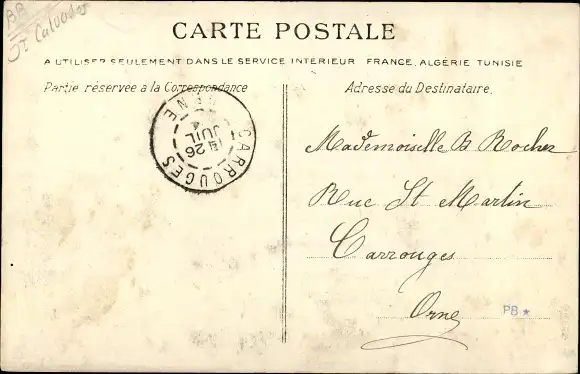 CARTE POSTALE
A UTILISER SEULEMENT DANS LE SERVICE INTÉRIEUR FRANCE, ALGÉRIE TUNISIE
Partie réservée à la Correspondance
Adresse du Destinataire.
CARROUGES
26
JUIL
Mademoiselle B Rocher
Rue St Martin
Carrouges
Orne
PB★